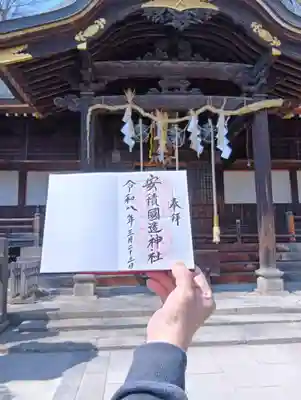 奉拝
安積國造神社
令和八年三月二十二日